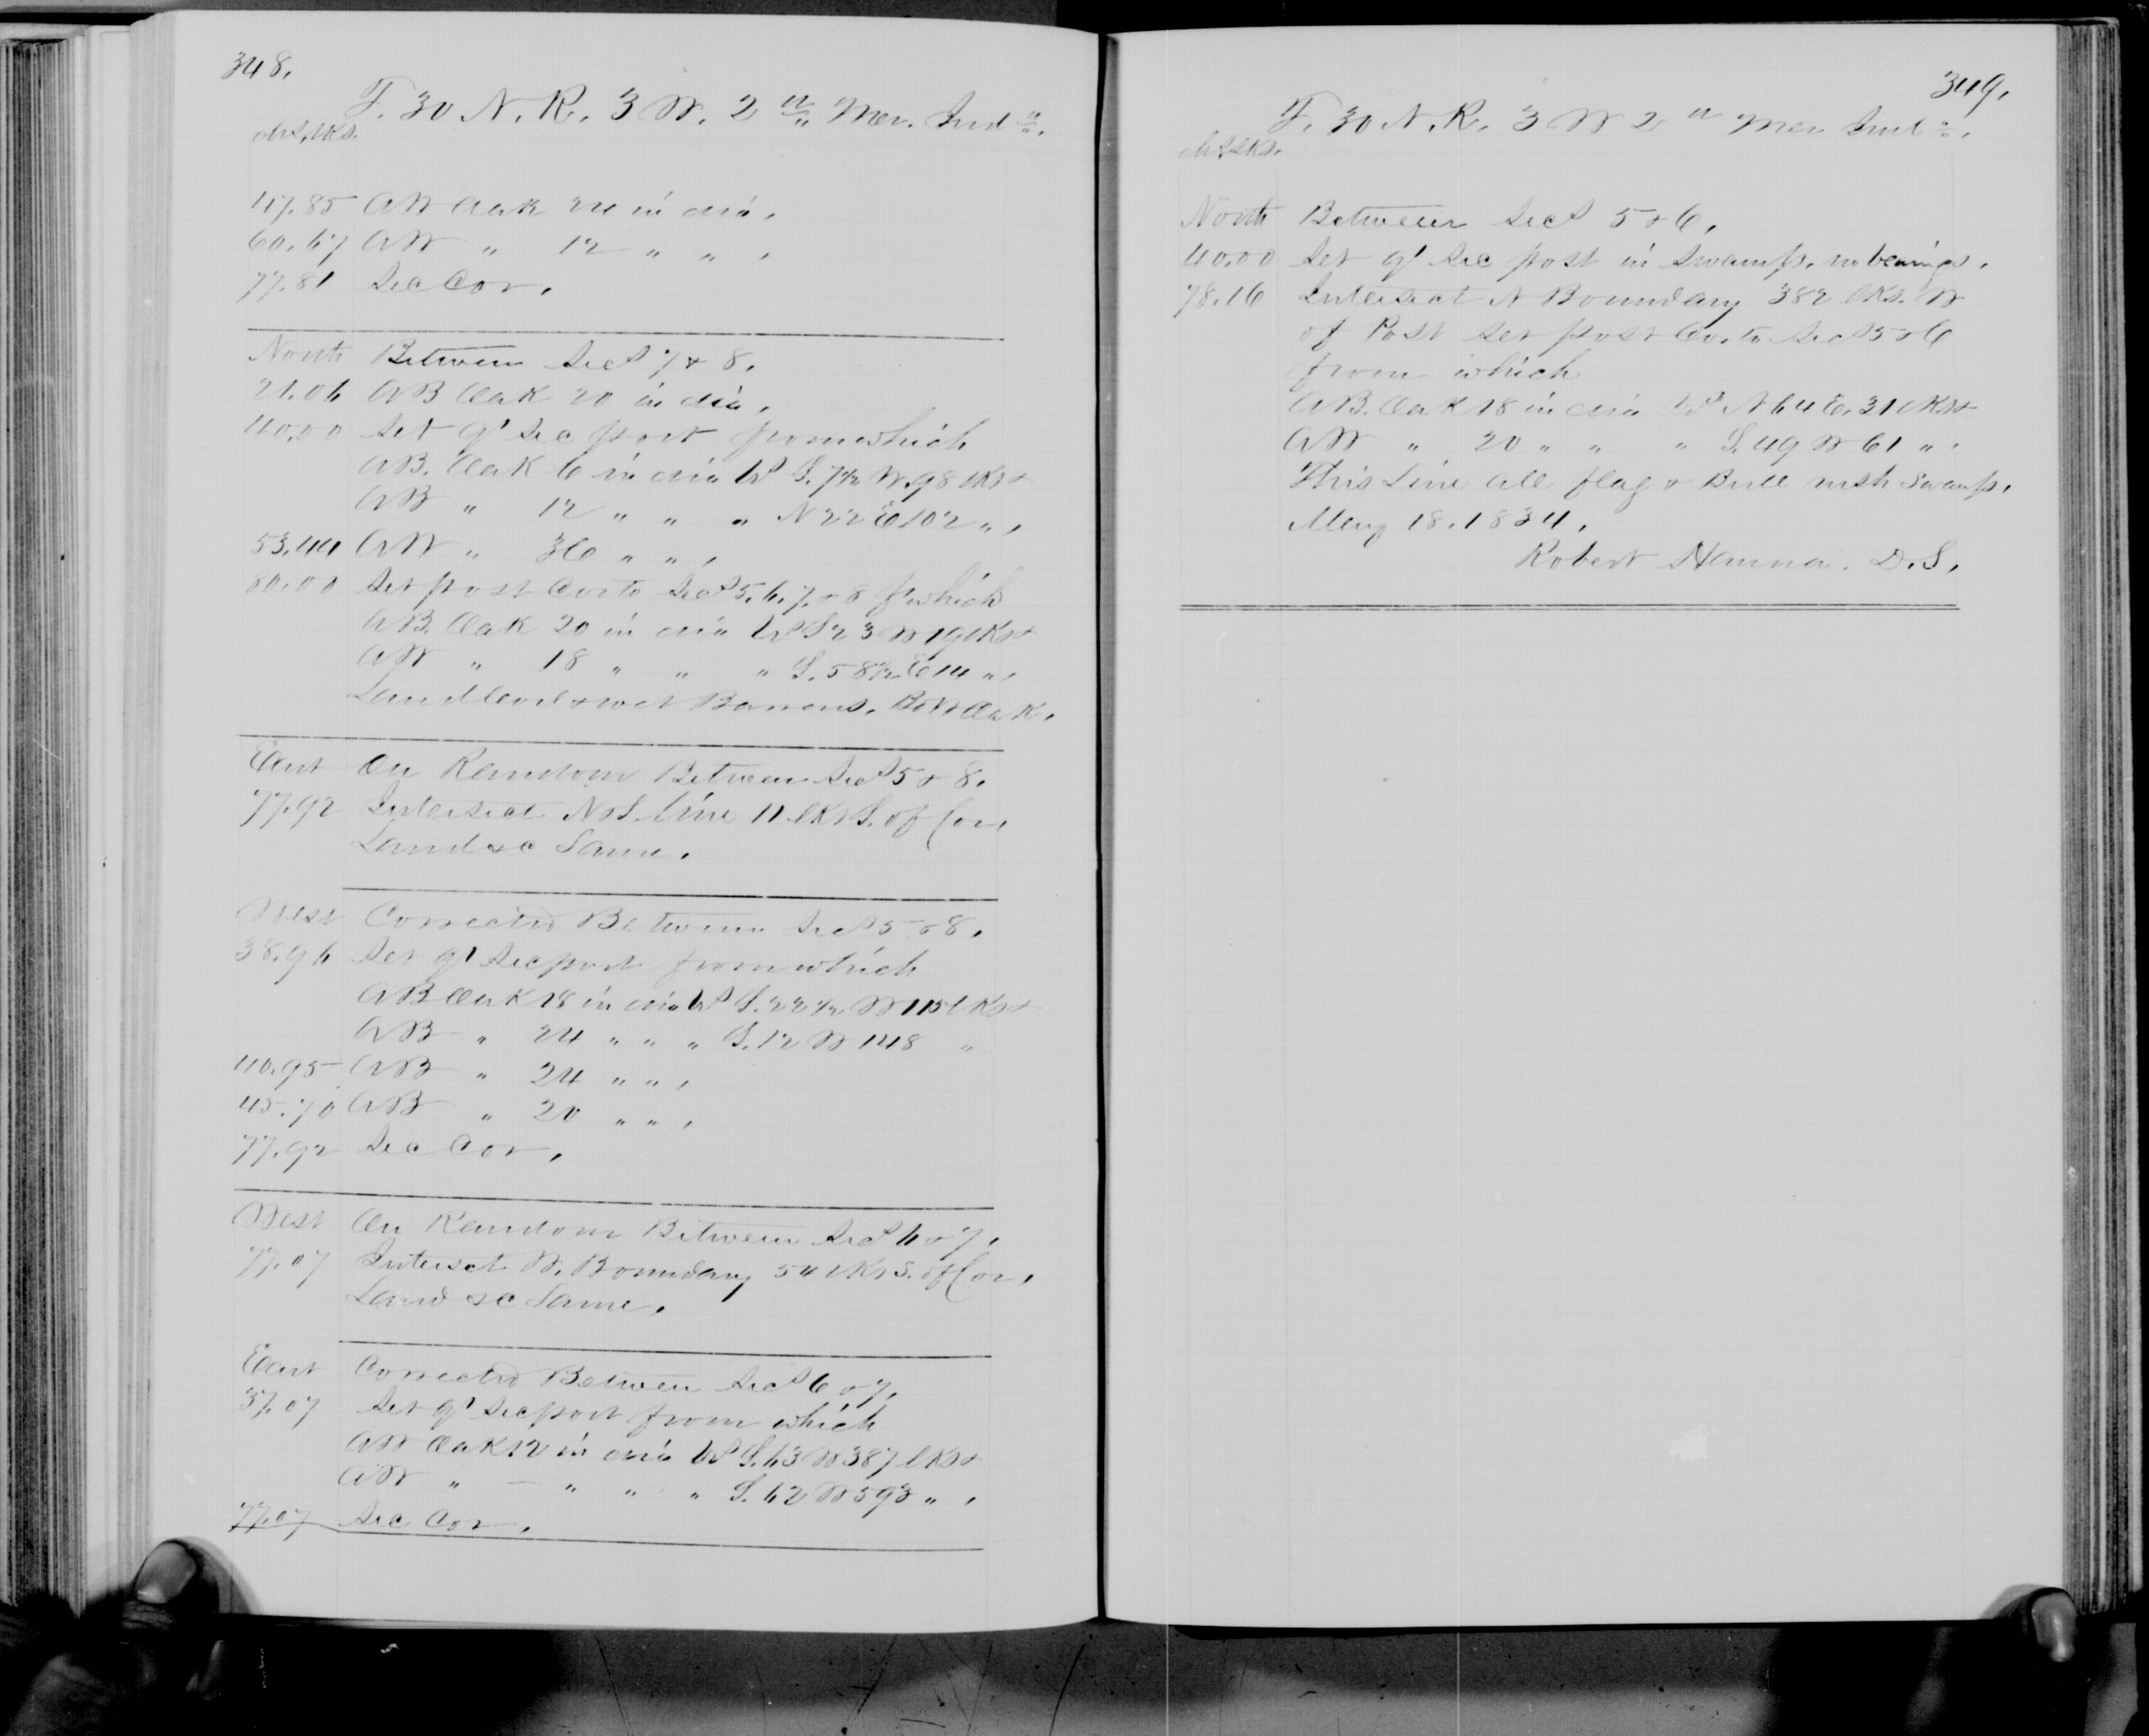 348.
T. 30 N. R. 3 W. 2nd Mer. Inda.
chs. lks.
47.85 A W Oak 24 in dia.
60.67 A W " 12 " " .
77.81 Sec Cor.
North Between Secs 7 & 8.
21.06 A B Oak 20 in dia.
40.00 Set qr Sec post from which
A B. Oak 6 in dia brs S. 7½ W. 98 lks &
A B " 12 " " " N 22 E 102 " .
53.44 A W " 36 " " .
80.00 Set post Cor to Secs 5, 6, 7, & 8 f which
A B. Oak 20 in dia brs S 23 W 19 lks &
A W " 18 " " " S. 58½ E 14 " .
Land level & wet Barrens. B & W Oak.
East On Random Between Secs 5 & 8.
77.92 Intersect N & S. line 11 lks S. of Cor.
Land &c Same.
West Corrected Between Secs 5 & 8.
38.96 Set qr Sec post from which
A B Oak 18 in dia brs S. 22½ W 115 lks &
A B " 24 " " " S. 12 W 148 "
40.95 A B " 24 " " .
45.70 A B " 20 " " .
77.92 Sec Cor.
West On Random Between Secs 6 & 7.
77.07 Intersct W. Boundary 54 lks S. of Cor.
Land &c Same.
East Corrected Between Secs 6 & 7.
37.07 Set qr Sec post from which
A W Oak 12 in dia brs S. 63 W 387 lks &
A W " — " " " S. 62 W 593 " .
77.07 Sec Cor.
349.
T. 30 N. R. 3 W 2nd Mer Inda.
chs lks.
North Between Secs 5 & 6.
40.00 Set qr Sec post in Swamp. no bearings.
78.16 Intersect N Boundary 382 lks. W
of Post Set post Cor. to Secs 5 & 6
from which
A B. Oak 18 in dia brs N 64 E. 31 lks &
A W " 20 " " " S. 49 W 61 " .
This Line all flag & Bull rush Swamp.
May 18. 1834.
Robert Hanna. D. S.